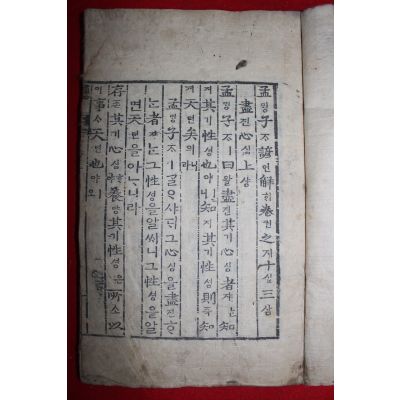 孟밍子ᄌᆞ諺언解ᄒᆡ卷권之지十십三삼
盡진心심上샹
孟밍子ᄌᆞㅣ曰왈盡진其기心심者쟈ᄂᆞᆫ知
지其기性셩也야ㅣ니知지其기性셩則즉知
지天텬矣의니라
孟밍子ᄌᆞㅣᄀᆞᆯᄋᆞ샤ᄃᆡ그心심을盡진ᄒᆞ
ᄂᆞᆫ者쟈ᄂᆞᆫ그性셩을알ᄊᆡ니그性셩을알
면天텬을아ᄂᆞ니라
存존其기心심ᄒᆞ야養양其기性셩은所소以
이事ᄉᆞ天텬也야ㅣ오